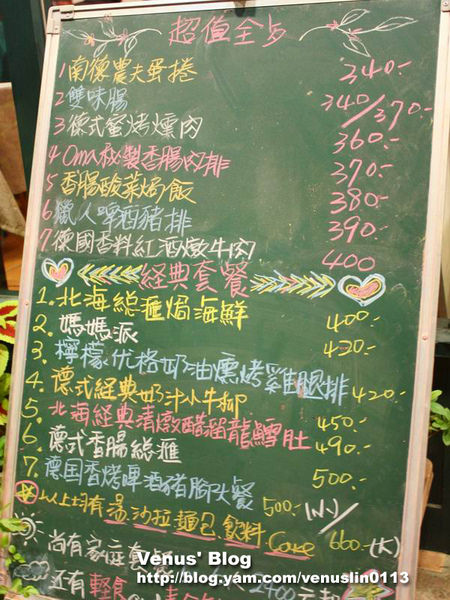 超值全步
1 南德農夫蛋捲 340.-
2 雙味腸 340/370.-
3 德式蜜烤燻肉 360.-
4 Oma秘製香腸肉排 370.-
5 香腸酸菜焗飯 380.-
6 獵人啤酒豬排 390.-
7 德國香料紅酒燉牛肉 400
經典套餐
1. 北海總滙焗海鮮 400.-
2. 媽媽派 420.-
3. 檸檬优格奶油燻烤雞腿排 420.-
4. 德式經典奶汁小牛柳 450.-
5. 北海經典清燉醋溜龍鱈肚 490.-
6. 德式香腸總滙 500.-
7. 德国香烤啤酒豬腳大餐 500.-(小)/
660.-(大)
以上均有湯.沙拉.麵包.飲料
尚有家庭套 2400
還有輕食
Venus' Blog
http://blog.yam.com/venuslin0113